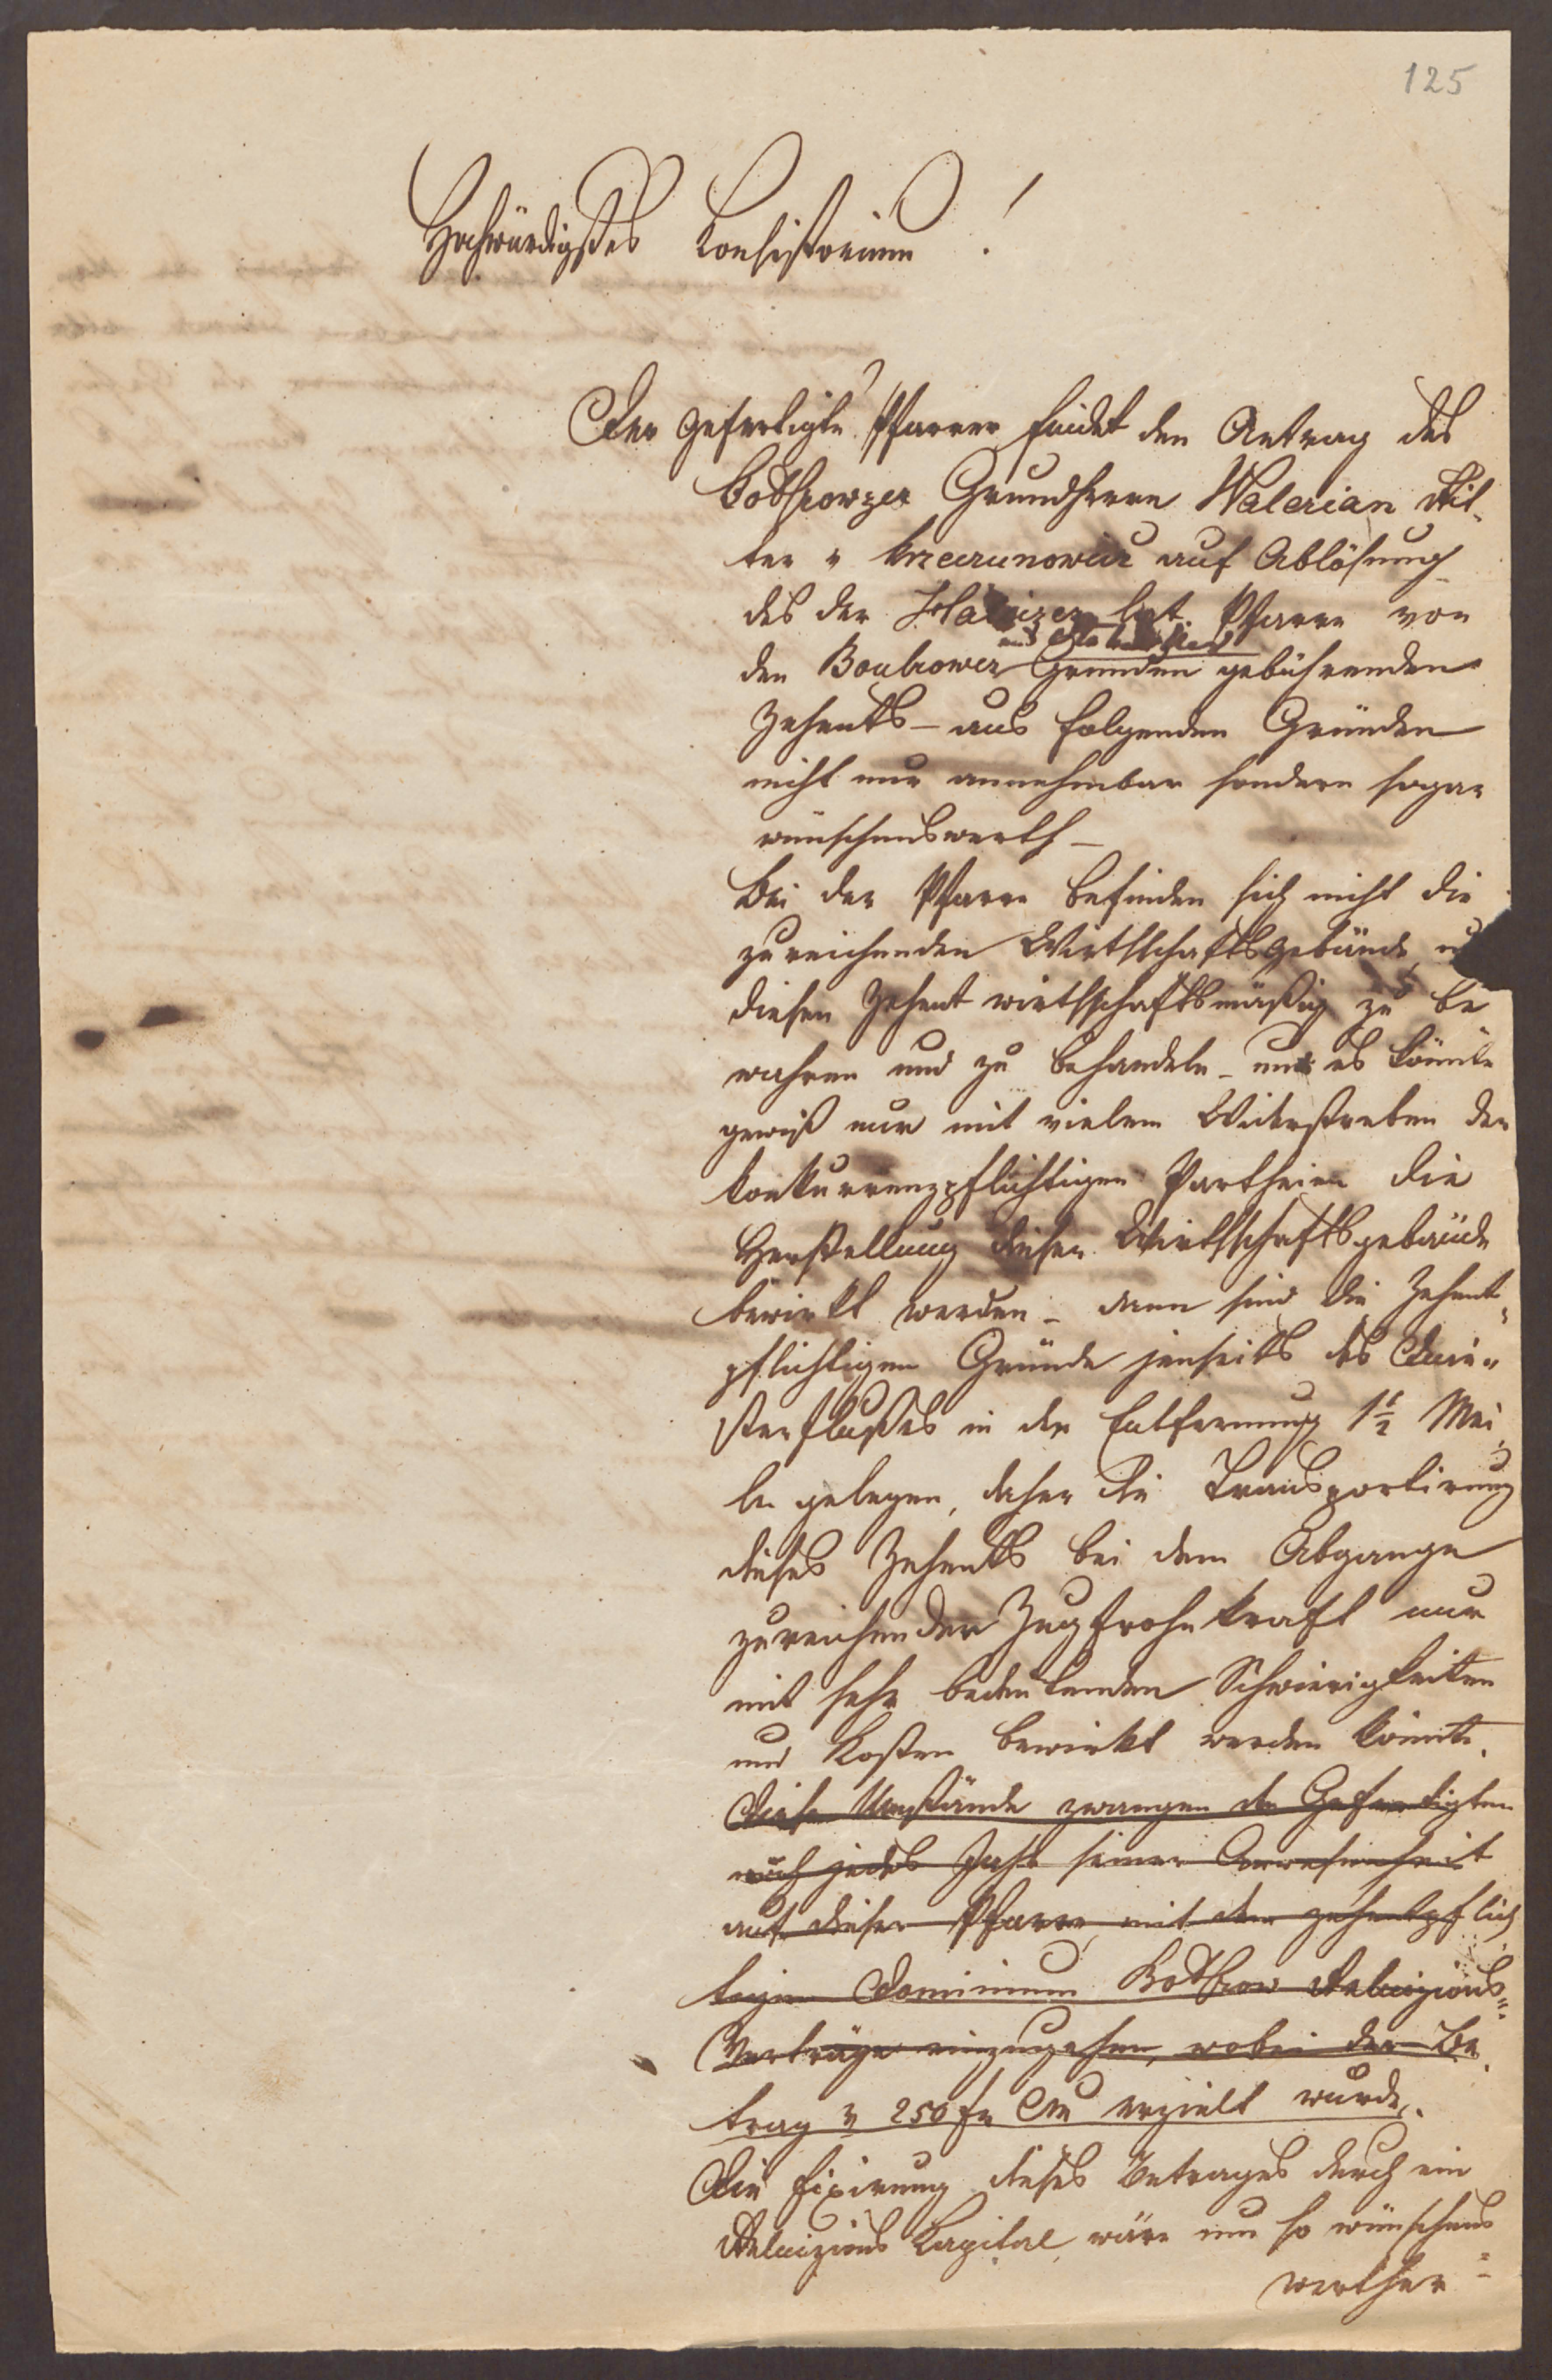 125
Hochwürdigstes Konsistorium!
Der gefertigte Pfarrer findet den Antrag des
Bolszowzer Grundherrn Walerian Rit-
ter v Krzeczunowicz auf Ablösung
des der Haliczer lat. Pfarre von
und
den Boubrower Gründen gebührenden
Zehents – aus folgenden Gründen
nicht nur annehmbar sondern sogar
wünschenswerth –
Bei der Pfarre befinden sich nicht die
zureichenden Wirthschaftsgebäude, u
diesen Zehent wirthschaftsmäßig zu be
wahren und zu behandeln – und es könnte
gewiß nur mit vielem Widerstreben der
konkurrenzpflichtigen Partheien die
Herstellung dieser Wirthschaftsgebäude
bewirkt werden – dann sind die Zehent-
pflichtigen Gründe jenseits des Dnie-
sterflußes in der Entfernung 1½ Mei
len gelegen, daher die Transportirung
dieses Zehents bei dem Abgange
zureichender Zugfrohnkraft nur
mit sehr bedeutenden Schwierigkeiten
und Kosten bewirkt werden könnte.
Diese Umstände zwangen den Gefertigten
noch jedes Jahr seiner Anwesenheit
auf dieser Pfarre, mit dem zehentpflich
tigen Dominium Bolszow Reluizions-
Verträge einzugehen, wobei der Be
trag v 250 fr CM erzielt wurde.
Die Fixirung dieses Betrages durch ein
Reluizions Kapital, wäre um so wünschens
werther –